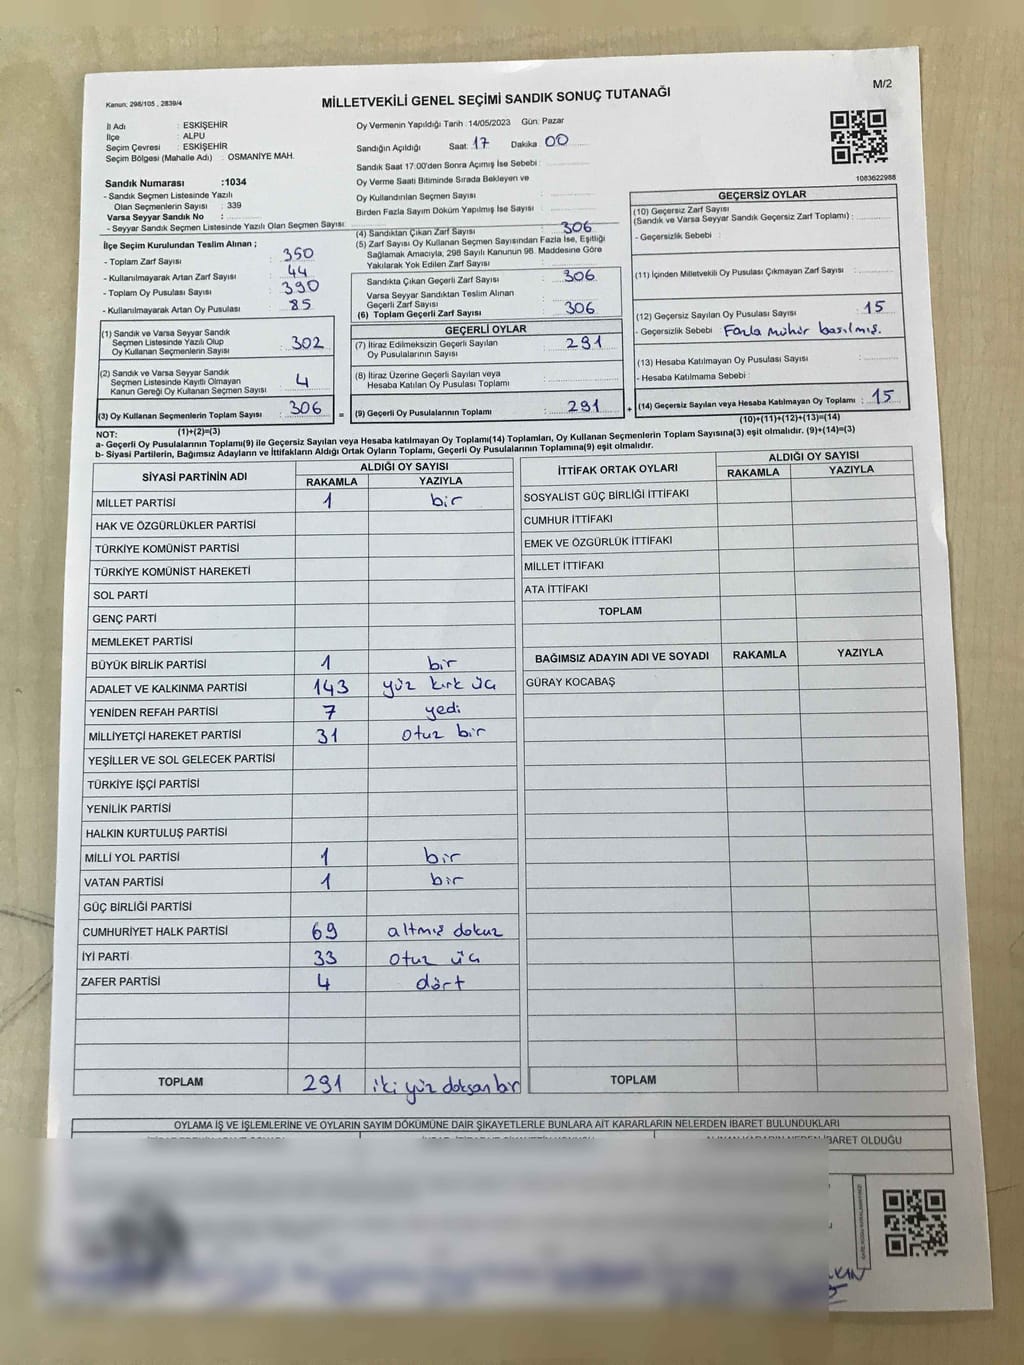 Kanun; 298/105 , 2839/4
M/2
MİLLETVEKİLİ GENEL SEÇİMİ SANDIK SONUÇ TUTANAĞI
İl Adı : ESKİŞEHİR
İlçe : ALPU
Seçim Çevresi : ESKİŞEHİR
Seçim Bölgesi (Mahalle Adı) : OSMANİYE MAH.
Sandık Numarası :1034
- Sandık Seçmen Listesinde Yazılı
Olan Seçmenlerin Sayısı : 339
Varsa Seyyar Sandık No :
- Seyyar Sandık Seçmen Listesinde Yazılı Olan Seçmen Sayısı:
İlçe Seçim Kurulundan Teslim Alınan ;
- Toplam Zarf Sayısı : 350
- Kullanılmayarak Artan Zarf Sayısı : 44
- Toplam Oy Pusulası Sayısı : 390
- Kullanılmayarak Artan Oy Pusulası : 85
(1) Sandık ve Varsa Seyyar Sandık
Seçmen Listesinde Yazılı Olup
Oy Kullanan Seçmenlerin Sayısı : 302
(2) Sandık ve Varsa Seyyar Sandık
Seçmen Listesinde Kayıtlı Olmayan
Kanun Gereği Oy Kullanan Seçmen Sayısı : 4
(3) Oy Kullanan Seçmenlerin Toplam Sayısı : 306
(1)+(2)=(3)
Oy Vermenin Yapıldığı Tarih : 14/05/2023 Gün: Pazar
Sandığın Açıldığı Saat: 17 Dakika 00
Sandık Saat 17:00'den Sonra Açımış İse Sebebi :
Oy Verme Saati Bitiminde Sırada Bekleyen ve
Oy Kullandırılan Seçmen Sayısı :
Birden Fazla Sayım Döküm Yapılmış İse Sayısı :
(4) Sandıktan Çıkan Zarf Sayısı : 306
(5) Zarf Sayısı Oy Kullanan Seçmen Sayısından Fazla İse, Eşitliği
Sağlamak Amacıyla, 298 Sayılı Kanunun 98. Maddesine Göre
Yakılarak Yok Edilen Zarf Sayısı :
Sandıkta Çıkan Geçerli Zarf Sayısı : 306
Varsa Seyyar Sandıktan Teslim Alınan
Geçerli Zarf Sayısı :
(6) Toplam Geçerli Zarf Sayısı : 306
GEÇERLİ OYLAR
(7) İtiraz Edilmeksizin Geçerli Sayılan
Oy Pusulalarının Sayısı : 291
(8) İtiraz Üzerine Geçerli Sayılan veya
Hesaba Katılan Oy Pusulası Toplamı :
= (9) Geçerli Oy Pusulalarının Toplamı : 291 +
1083622988
GEÇERSİZ OYLAR
(10) Geçersiz Zarf Sayısı
(Sandık ve Varsa Seyyar Sandık Geçersiz Zarf Toplamı) :
- Geçersizlik Sebebi :
(11) İçinden Milletvekili Oy Pusulası Çıkmayan Zarf Sayısı :
(12) Geçersiz Sayılan Oy Pusulası Sayısı : 15
- Geçersizlik Sebebi : Fazla mühür basılmış.
(13) Hesaba Katılmayan Oy Pusulası Sayısı :
- Hesaba Katılmama Sebebi :
(14) Geçersiz Sayılan veya Hesaba Katılmayan Oy Toplamı : 15
(10)+(11)+(12)+(13)=(14)
NOT:
a- Geçerli Oy Pusulalarının Toplamı(9) ile Geçersiz Sayılan veya Hesaba katılmayan Oy Toplamı(14) Toplamları, Oy Kullanan Seçmenlerin Toplam Sayısına(3) eşit olmalıdır. (9)+(14)=(3)
b- Siyasi Partilerin, Bağımsız Adayların ve İttifakların Aldığı Ortak Oyların Toplamı, Geçerli Oy Pusulalarının Toplamına(9) eşit olmalıdır.
SİYASİ PARTİNİN ADI ALDIĞI OY SAYISI
RAKAMLA YAZIYLA
MİLLET PARTİSİ 1 bir
HAK VE ÖZGÜRLÜKLER PARTİSİ
TÜRKİYE KOMÜNİST PARTİSİ
TÜRKİYE KOMÜNİST HAREKETİ
SOL PARTİ
GENÇ PARTİ
MEMLEKET PARTİSİ
BÜYÜK BİRLİK PARTİSİ 1 bir
ADALET VE KALKINMA PARTİSİ 143 yüz kırk üç
YENİDEN REFAH PARTİSİ 7 yedi
MİLLİYETÇİ HAREKET PARTİSİ 31 otuz bir
YEŞİLLER VE SOL GELECEK PARTİSİ
TÜRKİYE İŞÇİ PARTİSİ
YENİLİK PARTİSİ
HALKIN KURTULUŞ PARTİSİ
MİLLİ YOL PARTİSİ 1 bir
VATAN PARTİSİ 1 bir
GÜÇ BİRLİĞİ PARTİSİ
CUMHURİYET HALK PARTİSİ 69 altmış dokuz
İYİ PARTİ 33 otuz üç
ZAFER PARTİSİ 4 dört
TOPLAM 291 iki yüz doksan bir
İTTİFAK ORTAK OYLARI ALDIĞI OY SAYISI
RAKAMLA YAZIYLA
SOSYALİST GÜÇ BİRLİĞİ İTTİFAKI
CUMHUR İTTİFAKI
EMEK VE ÖZGÜRLÜK İTTİFAKI
MİLLET İTTİFAKI
ATA İTTİFAKI
TOPLAM
BAĞIMSIZ ADAYIN ADI VE SOYADI RAKAMLA YAZIYLA
GÜRAY KOCABAŞ
TOPLAM
OYLAMA İŞ VE İŞLEMLERİNE VE OYLARIN SAYIM DÖKÜMÜNE DAİR ŞİKAYETLERLE BUNLARA AİT KARARLARIN NELERDEN İBARET BULUNDUKLARI
İBARET OLDUĞU